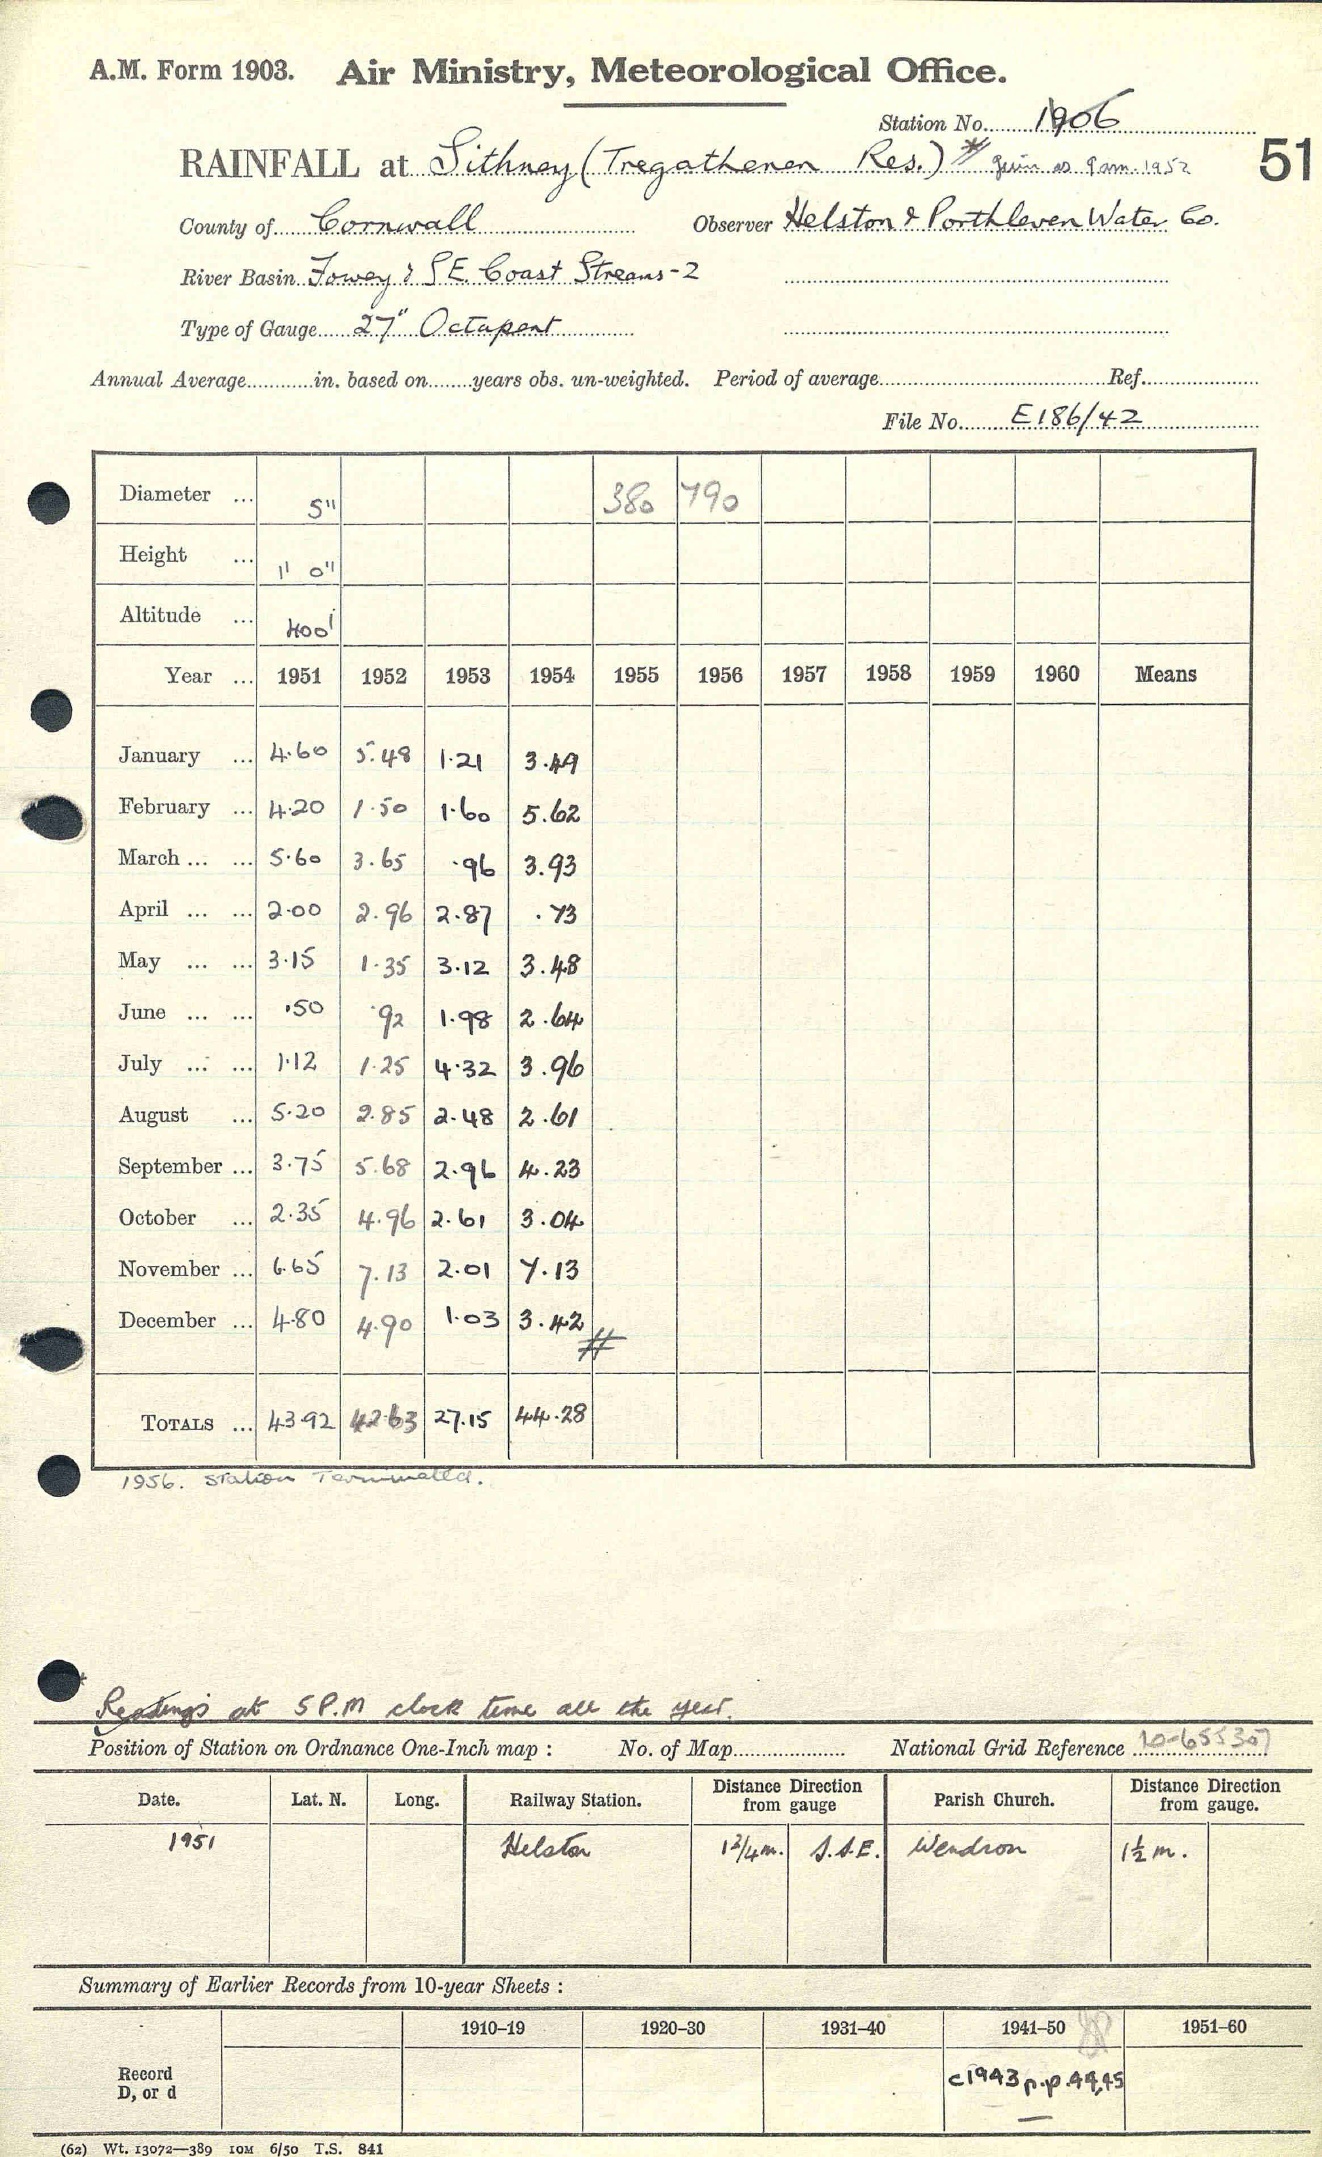 A.M. Form 1903. Air Ministry, Meteorological Office.
Station No. 1906
RAINFALL at Sithney (Tregathenen Res.) * given as 9 am. 1952 51
County of Cornwall Observer Helston & Porthleven Water Co.
River Basin Fowey & S.E. Coast Streams-2
Type of Gauge 27" Octapent
Annual Average in. based on years obs. un-weighted. Period of average Ref.
File No. E186/42
Diameter ... 5" 380 790
Height ... 1' 0"
Altitude ... 400'
Year ... 1951 1952 1953 1954 1955 1956 1957 1958 1959 1960 Means
January ... 4.60 5.48 1.21 3.49
February ... 4.20 1.50 1.60 5.62
March ... ... 5.60 3.65 .96 3.93
April ... ... 2.00 2.96 2.87 .73
May ... ... 3.15 1.35 3.12 3.48
June ... ... .50 .92 1.98 2.64
July ... ... 1.12 1.25 4.32 3.96
August ... 5.20 2.85 2.48 2.61
September ... 3.75 5.68 2.96 4.23
October ... 2.35 4.96 2.61 3.04
November ... 6.65 7.13 2.01 7.13
December ... 4.80 4.90 1.03 3.42
#
TOTALS ... 43.92 42.63 27.15 44.28
1956. Station Terminated.
* Readings at 5 P.M clock time all the year.
Position of Station on Ordnance One-Inch map : No. of Map National Grid Reference 10-655307
Date. Lat. N. Long. Railway Station. Distance Direction from gauge Parish Church. Distance Direction from gauge.
1951 Helston 1 3/4 m. S.S.E. Wendron 1½ m.
Summary of Earlier Records from 10-year Sheets :
1910–19 1920–30 1931–40 1941–50 1951–60
Record
D, or d
c1943 p.p. 44,45
(62) Wt. 13072—389 10M 6/50 T.S. 841